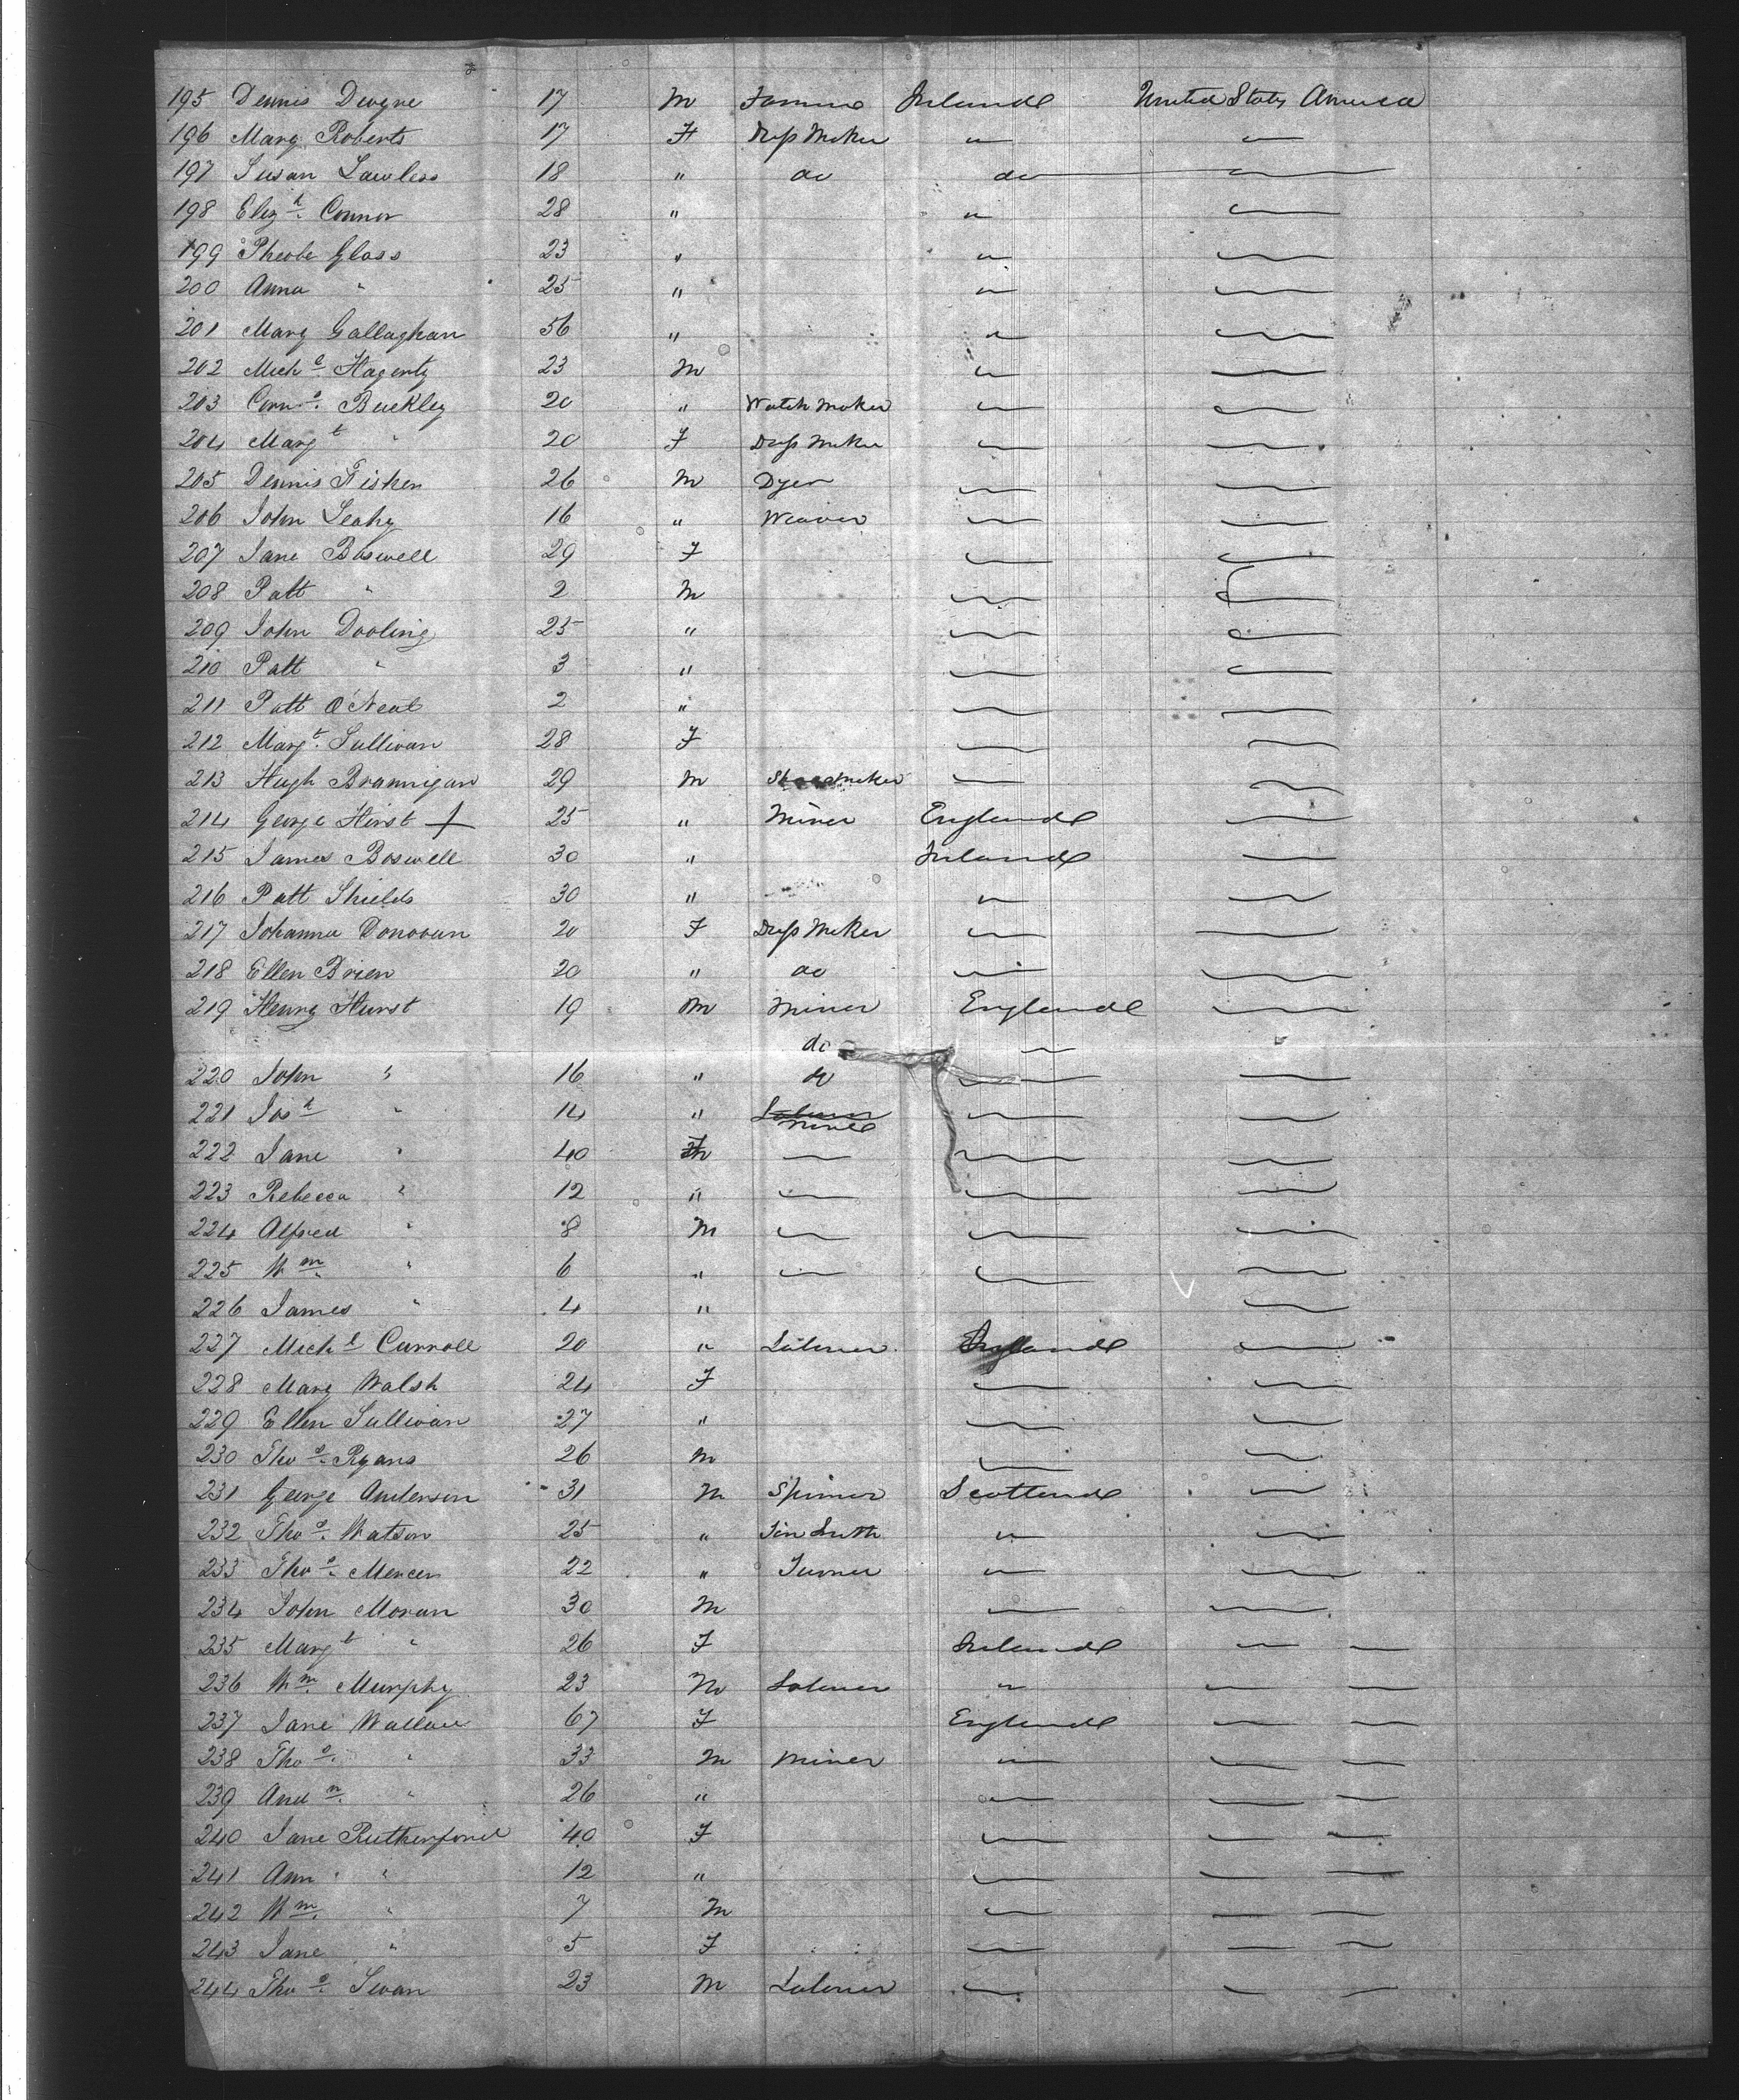 195 Dennis Dwyne 17 M Farmer Irelande United States America
196 Mary Roberts 17 F Dress Maker " "
197 Susan Lawless 18 " do do "
198 Eliz h. Connor 28 " " "
199 Pheobe Glass 23 " " "
200 Anna " 25 " " "
201 Mary Gallaghan 56 " " "
202 Mich l. Hagerty 23 M " "
203 Corn s. Buckley 20 " Watch Maker " "
204 Marg t " 20 F Dress Maker " "
205 Dennis Fisher 26 M Dyer " "
206 John Leahy 16 " Weaver " "
207 Jane Boswell 29 F " "
208 Patt " 2 M " "
209 John Dooling 25 " " "
210 Patt " 3 " " "
211 Patt O'Neal 2 " " "
212 Marg t. Sullivan 28 F " "
213 Hugh Brannigan 29 M Shoemaker " "
214 George Hirst 25 " Miner England "
215 James Boswell 30 " Ireland "
216 Patt Shields 30 " " "
217 Johanna Donovan 20 F Dress Maker " "
218 Ellen Brien 20 " do " "
219 Henry Hurst 19 M Miner England "
do "
220 John " 16 " do " "
221 Jos h " 14 " Miner " "
222 Jane " 40 F " " "
223 Rebecca " 12 " " " "
224 Alfred " 8 M " " "
225 Wm. " 6 " " " "
226 James " 4 " "
227 Mich l Carroll 20 " Laborer England "
228 Mary Walsh 24 F " "
229 Ellen Sullivan 27 " " "
230 Tho s. Ryans 26 M " "
231 George Anderson 31 M Spinner Scotland "
232 Tho s. Watson 25 " Tin Smith " "
233 Tho s. Mercer 22 " Turner " "
234 John Moran 30 M " "
235 Marg t " 26 F Ireland " "
236 Wm. Murphy 23 M Laborer " " "
237 Jane Wallace 67 F England " "
238 Tho s. " 33 M Miner " " "
239 And w. " 26 " " " "
240 Jane Rutherford 40 F " " "
241 Ann " 12 " " " "
242 Wm. " 7 M " " "
243 Jane " 5 F " " "
244 Tho s. Swan 23 M Laborer " " "